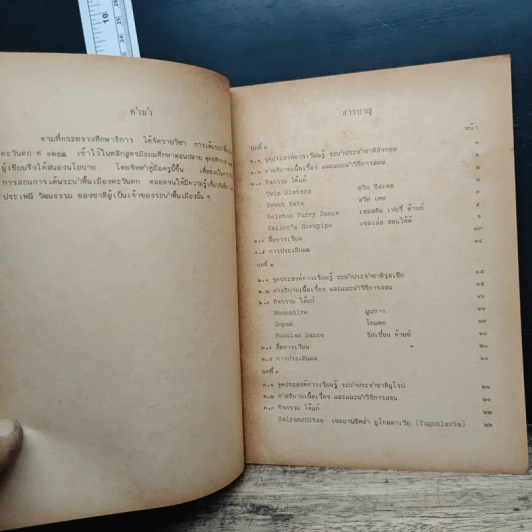 10
คำนำ
ตามที่กระทรวงศึกษาธิการ ได้จัดรายวิชา การเต้นรำพื้น
ตะวันตก ศ ๐๒๒ เข้าไว้ในหลักสูตรมัธยมศึกษาตอนปลาย พุทธศักราช
ผู้เขียนจึงได้สนองนโยบาย โดยจัดทำคู่มือครูนี้ขึ้น
การสอนการเต้นระบำพื้นเมืองตะวันตก ตลอดจนให้มีความรู้เกี่ยวกับ
ประเพณี วัฒนธรรม ของชาติผู้เป็นเจ้าของระบำพื้นเมืองนั้น ๆ
สารบาญ
หน้า
บทที่ ๑
๑.๑ จุดประสงค์การเรียนรู้ ระบำประจำชาติอังกฤษ ๑
๑.๒ คำอธิบายเนื้อเรื่อง และแนะนำวิธีการสอน
๑.๓ กิจกรรม ได้แก่
Twin Sisters ทวิน ซิสเตอ
Sweet Kate สวีท เคท
Helston Furry Dance เฮลสตัน เฟอรี่ ด้านซ์ ๖
Sailor's Hornpipe เซลเล่อ ฮอนไพพ์ ๑๓
๑.๔ สื่อการเรียน ๑๔
๑.๕ การประเมินผล
บทที่ ๒
๒.๑ จุดประสงค์การเรียนรู้ ระบำประจำชาติรุสเซีย ๑๕
๒.๒ คำอธิบายเนื้อเรื่อง และแนะนำวิธีการสอน ๑๕
๒.๓ กิจกรรม ได้แก่ ๑๖
Moonshire มูนชาย ๑๖
Gopak โกแพก ๑๗
Russian Dance รัสเซี่ยน ด้านซ์ ๑๘
๒.๔ สื่อการเรียน ๒๐
๒.๕ การประเมินผล ๒๐
บทที่ ๓
๓.๑ จุดประสงค์การเรียนรู้ ระบำประจำชาติยุโรป ๒๑
๓.๒ คำอธิบายเนื้อเรื่อง และแนะนำวิธีการสอน ๒๑
๓.๓ กิจกรรม ได้แก่ ๒๒
Selyanchitsa: เซลยานชิตซ่า ยูโกสลาเวีย (Yugoslavia) ๒๒